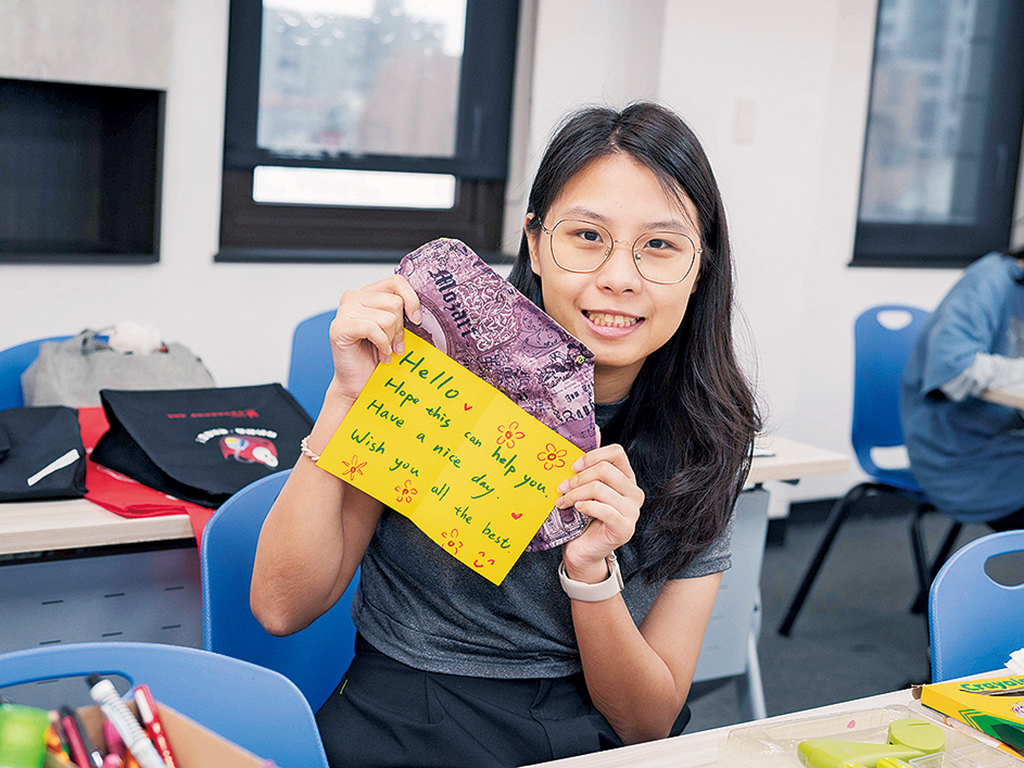 Mozart
Hello
Hope this can help you.
Have a nice day.
Wish you all the best.
Crayola